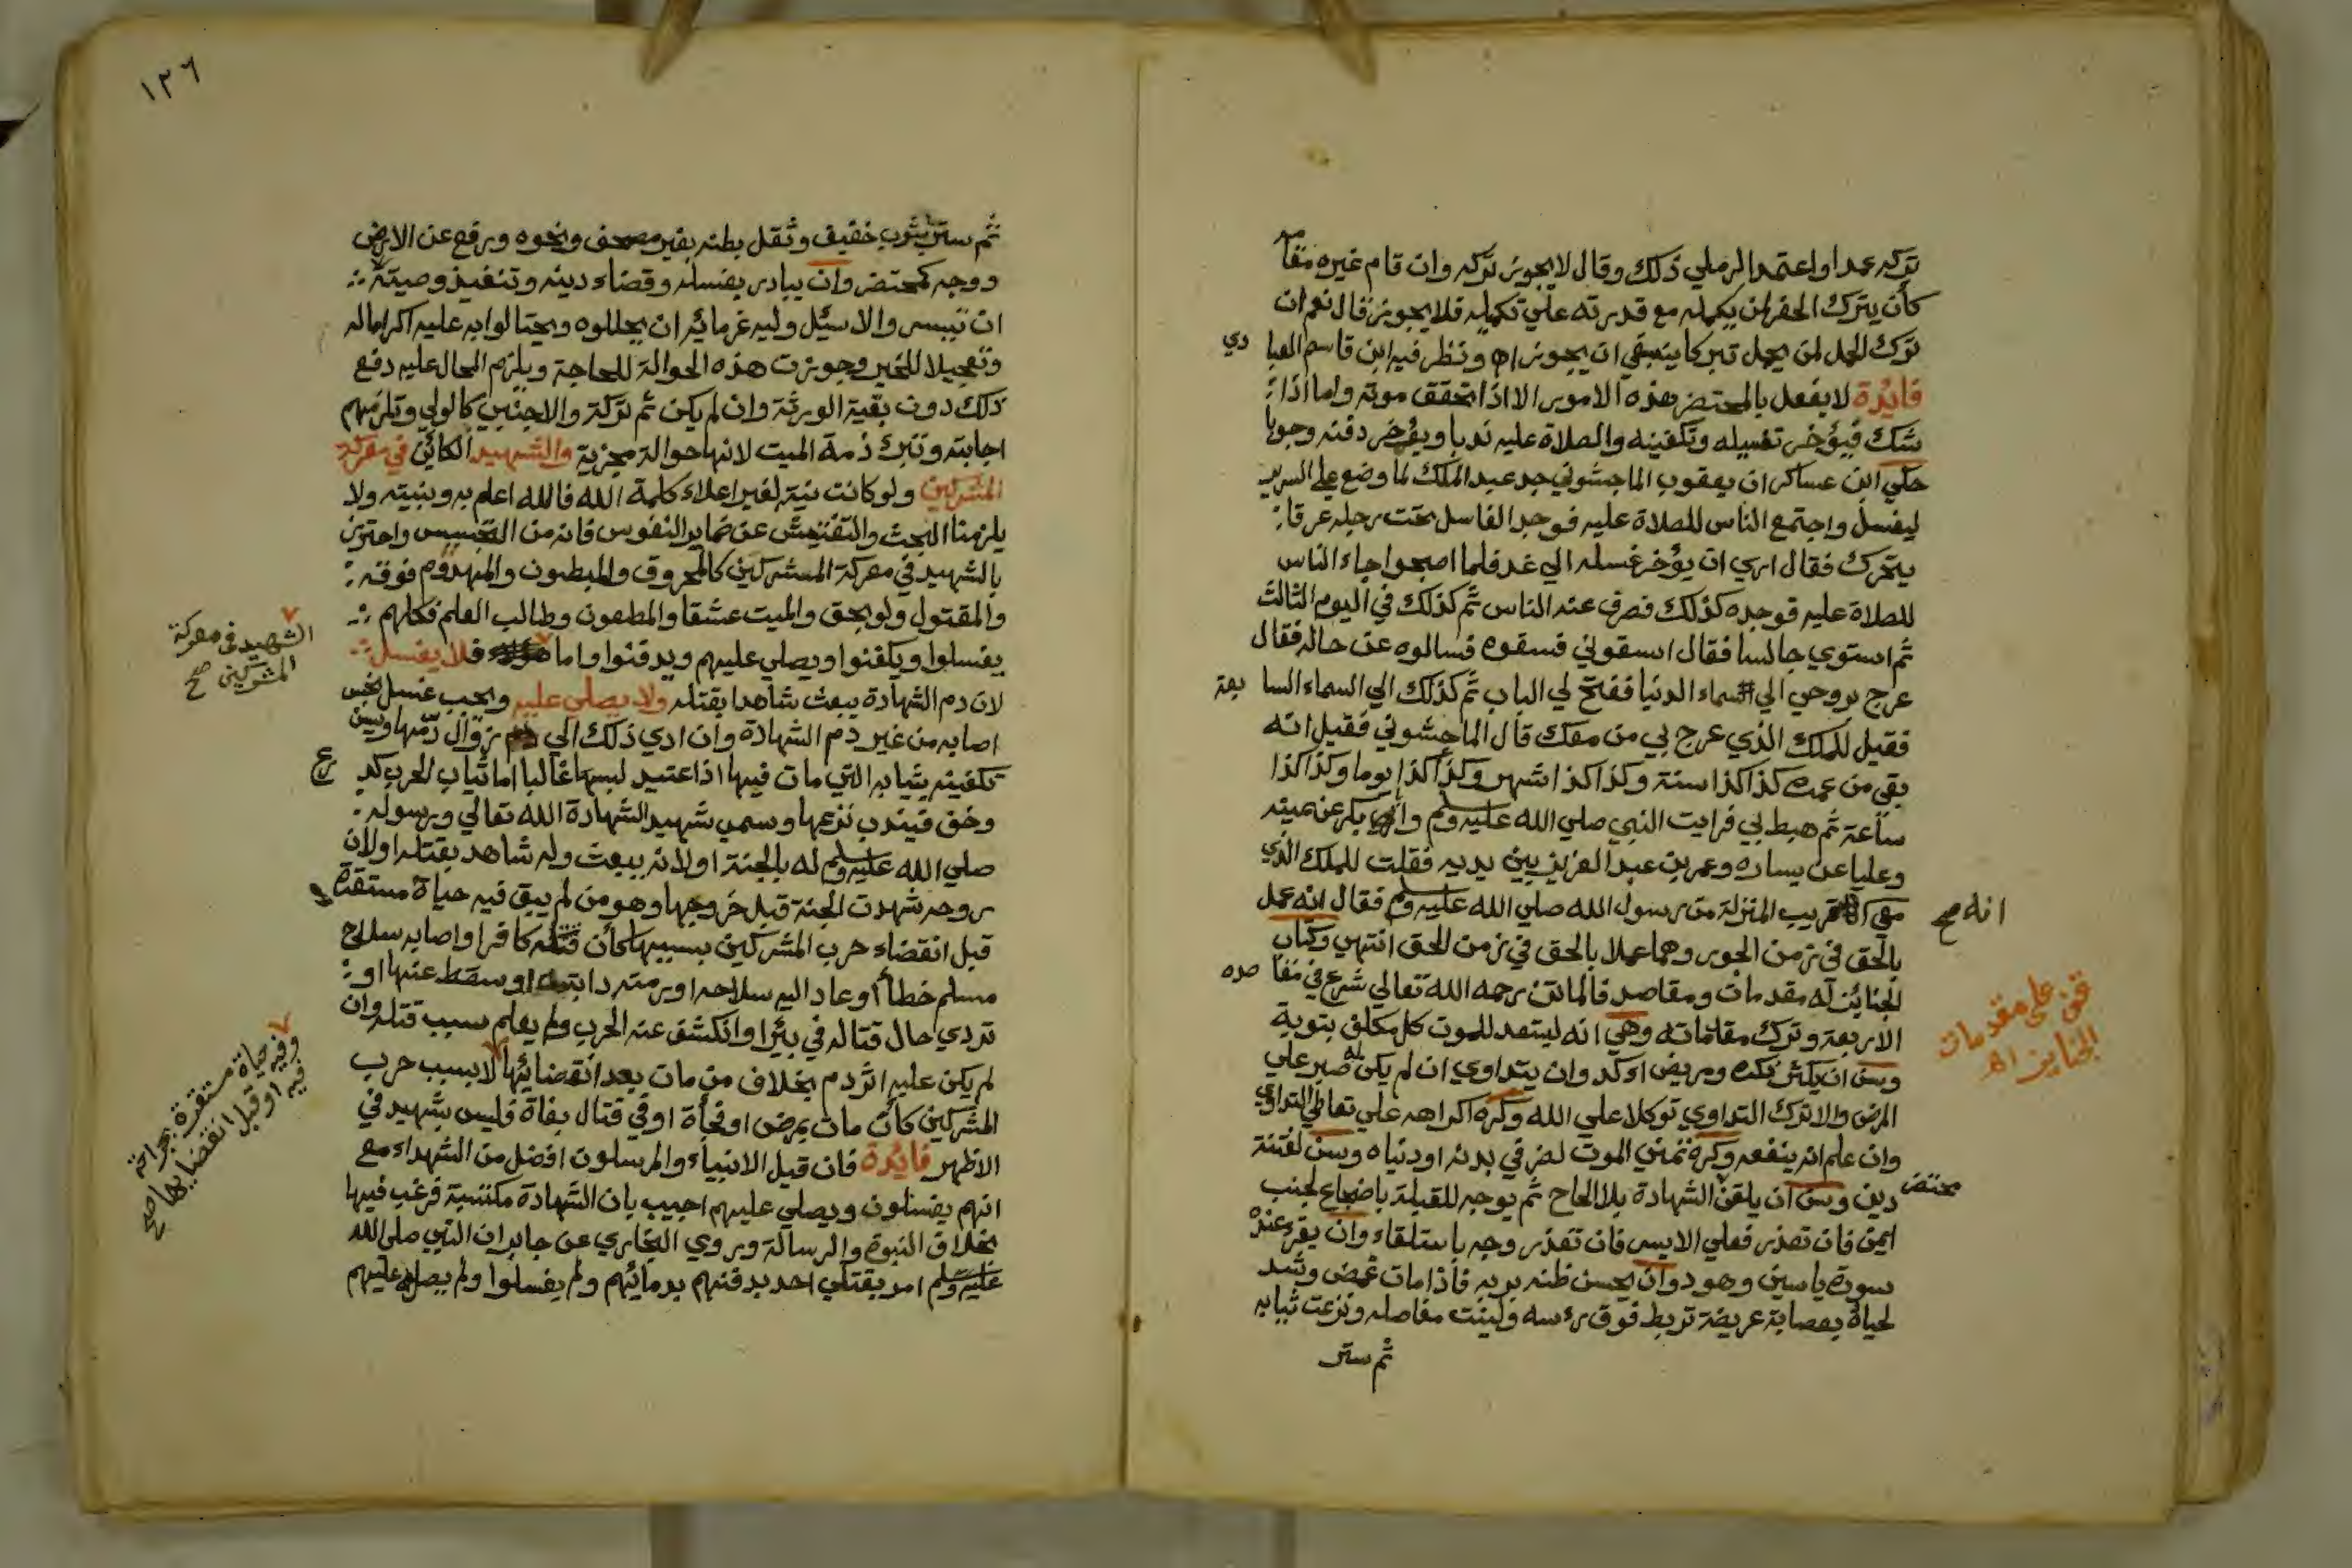 تركه عمدا واعتمد الرملي ذلك وقال لا يجوز تركه وان قام غيره مقامه
كأن يترك الحفر لمن يكمله مع قدرته علي تكميله فلا يجوز قال نعم ان
ترك الحمل لمن يحمل تبركا ينبغي ان يجوز اه ونظر فيه ابن قاسم العبادي
فايدة لا يفعل بالمحتضر هذه الامور الا اذا تحقق موته واما اذا
شك فيؤخر تغسيله وتكفينه والصلاة عليه ندبا ويؤخر دفنه وجوبا
حكي ابن عساكر ان يعقوب الماجشوني جد عبد الملك لما وضع علي السرير
ليغسل واجتمع الناس للصلاة عليه فوجد الغاسل تحت رجله عرقا
يتحرك فقال اري ان يؤخر غسله الي غد فلما اصبحوا جاء الناس
للصلاة عليه فوجده كذلك فصرف عنه الناس ثم كذلك في اليوم الثالث
ثم استوي جالسا فقال اسقوني فسقوه فسالوه عن حاله فقال
عرج بروحي الي السماء الدنيا ففتح لي الباب ثم كذلك الي السماء السابعة
فقيل للملك الذي عرج بي من معك قال الماجشوني فقيل انه
بقي من عمره كذا كذا سنة وكذا كذا اشهر وكذا كذا يوما وكذا كذا
ساعة ثم هبط بي فرايت النبي صلي الله عليه وسلم وابا بكر عن يمينه
وعليا عن يساره وعمر بن عبد العزيز بين يديه فقلت للملك الذي
معي قريب المنزلة من رسول الله صلي الله عليه وسلم فقال انه عمل
انه صح
بالحق في زمن الجور وهما عملا بالحق في زمن الحق انتهي وكتاب
الجنائز له مقدمات ومقاصد فالماتن رحمه الله تعالي شرع في مقاصده
الاربعة وترك مقدماته وهي انه ليستعد للموت كل مكلف بتوبة
على مقدمات
الجنايز اه
وسن ان يكثر ذكره ومريض اكد وان يتداوي ان لم يكن له صبر علي
المرض والا ترك التداوي توكلا علي الله وكره اكراهه علي تعاطي التداوي
وان علم انه ينفعه وكره تمني الموت لضر في بدنه او دنياه وسن لفتنة
دين وسن ان يلقن محتضر الشهادة بلا الحاح ثم يوجه للقبلة باضجاع لجنب
ايمن فان تعذر فعلي الايسر فان تعذر وجه باستلقاء وان يقرء عنده
سورة ياسين وهود وان يحسن ظنه بربه فاذا مات غمض وشد
لحياه بعصابة عريضة تربط فوق رءسه ولينت مفاصله ونزعت ثيابه
ثم ستر
١٢٦
ثم ستر بثوب خفيف وثقل بطنه بغير مصحف ونحوه ورفع عن الارض
ووجه كمحتضر وان يبادر بغسله وقضاء دينه وتنفيذ وصيته
ان تيسر والا سئل وليه غرمائه ان يحللوه ويحتالوا به عليه اكراما له
وتعجيلا للخير وجوزت هذه الحوالة للحاجة ويلزم المحال عليه دفع
ذلك دون بقية الورثة وان لم يكن ثم تركة والاجنبي كالولي وتلزمهم
اجابته وتبرئ ذمة الميت لانها حوالة مجزية والشهيد الكائن في معركة
المشركين ولو كانت نيته لغير اعلاء كلمة الله فالله اعلم به وبنيته ولا
يلزمنا البحث والتفتيش عن ضماير النفوس فانه من التجسس واحترز
بالشهيد في معركة المشركين كالمحروق والمبطون والمهدوم فوقه
والمقتول ولو بحق والميت عشقا والمطعون وطالب العلم فكلهم
يغسلوا ويكفنوا ويصلي عليهم ويدفنوا واما فلا يغسل
الشهيد في معركة
المشركين صح
لان دم الشهادة يبعث شاهدا بقتله ولا يصلى عليه ويجب غسل نجس
اصابه من غير دم الشهادة وان ادي ذلك الي زوال دمها وسن
تكفينه بثيابه التي مات فيها اذا اعتيد لبسها غالبا اما ثياب الحرب كدرع
وخف فيندب نزعها وسمي شهيد الشهادة الله تعالي ورسوله
صلي الله عليه وسلم له بالجنة او لانه يبعث وله شاهد بقتله او لان
روحه شهدت الجنة قبل خروجها وهو من لم يبق فيه حياة مستقرة
قبل انقضاء حرب المشركين بسببها كأن قتله كافر او اصابه سلاح
مسلم خطأ او عاد اليه سلاحه او رمته دابته او سقط عنها او
تردي حال قتاله في بئر او انكشف عنه الحرب ولم يعلم سبب قتله وان
لم يكن عليه اثر دم بخلاف من مات بعد انقضائها لا بسبب حرب
وفيه حياة مستقرة بجراحة
فيه او قبل انقضايها صح
المشركين كأن مات بمرض او فجأة او في قتال بغاة فليس بشهيد في
الاظهر فايدة فان قيل الانبياء والمرسلون افضل من الشهداء مع
انهم يغسلون ويصلي عليهم اجيب بان الشهادة مكتسبة فرغب فيها
بخلاف النبوة والرسالة وروي البخاري عن جابر ان النبي صلى الله
عليه وسلم امر بقتلي احد بدفنهم بدمائهم ولم يغسلوا ولم يصل عليهم